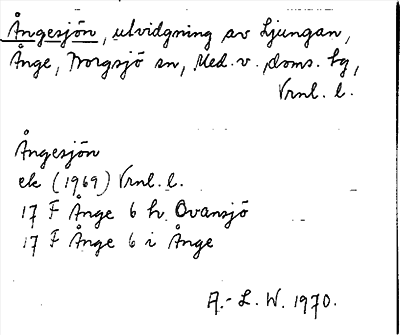 Ångesjön, utvidgning av Ljungan,
Ånge, Borgsjö sn, Med. v. doms. hg,
Vrnl. l.
Ångesjön
ek (1969) Vrnl. l.
17 F Ånge 6 h Ovansjö
17 F Ånge 6 i Ånge
A.-L. W. 1970.